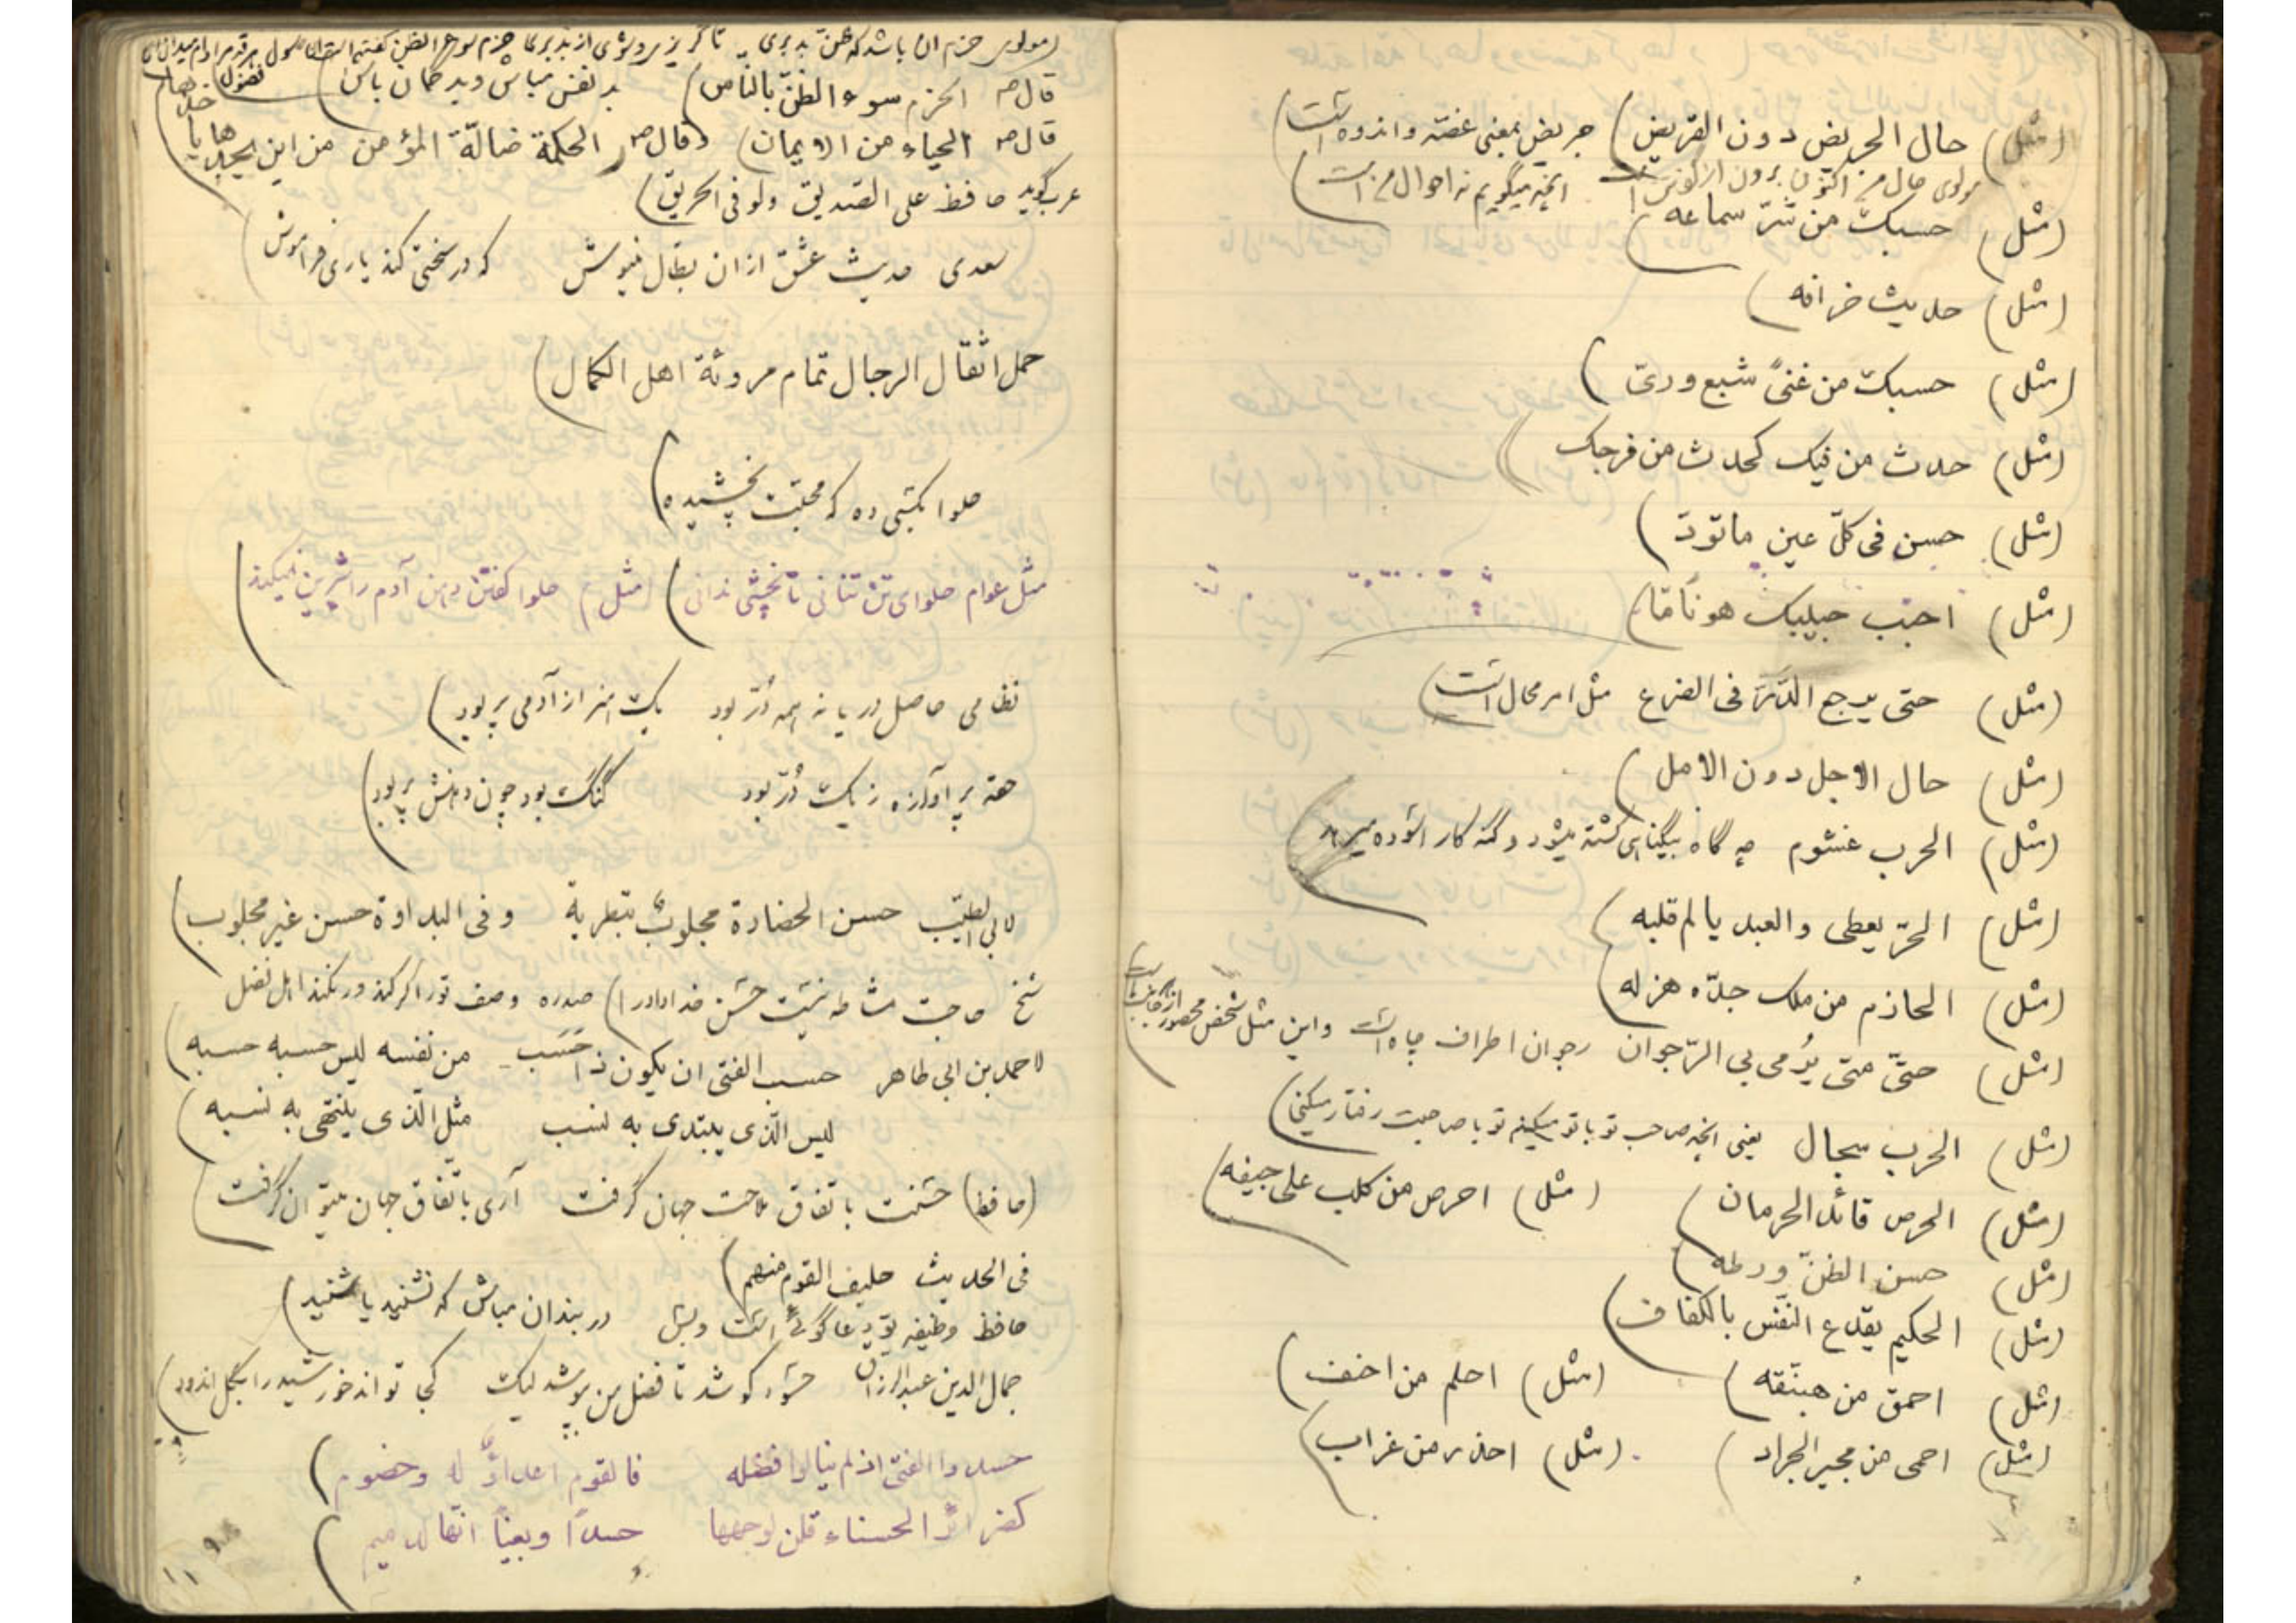 (مثل) حال الجریض دون القریض) جریض بمعنی غصّه و اندوه است)
مولوی حال من اکنون برون از گفتن است اینچه میگویم نه احوال من است)
(مثل) حسبک من شرّ سماعه)
(مثل) حدیث خرافه)
(مثل) حسبک من غنیً شبع وریّ)
(مثل) حدث من فیک کحدث من فرجک)
(مثل) حسن فی کلّ عین ماتودّ)
(مثل) احبب حبیبک هوناً مّا)
(مثل) حتی یرجع الدَرّ فی الضرع مثل امر محال است)
(مثل) حال الاجل دون الامل)
(مثل) الحرب غشوم چه گاه بیگناهی کشته میشود و گنه کار آسوده میرهد)
(مثل) الحرّ یعطی والعبد یالم قلبه)
(مثل) الحاذم من ملک جدّه هزله)
(مثل) حتّی متی یُرمی بی الرّجوان رجوان اطراف چاه است واین مثل شخص محصور از جانبین است)
(مثل) الحرب سجال یعنی انچه صاحب تو با تو میکند تو با صاحبت رفتار میکنی)
(مثل) الحرص قائد الحرمان) (مثل) احرص من کلب علی جیفه)
(مثل) حسن الظنّ ورطه)
(مثل) الحکیم یقدع النّفس بالکفاف)
(مثل) احمق من هبنّقه) (مثل) احلم من احنف)
(مثل) احمی من مجیر الجراد) (مثل) احذر من غراب)
(مولوی حزم ان باشد که ظنّ بد بری تا گریزی و شوی از بد بری حزم سوء الظن گفته است آن رسول هر قدم را دام میدان ای فضول)
قال ص الحزم سوء الظنّ بالنّاس) بد نفس مباش و بد گمان باش)
قال ص الحیاء من الایمان) وقال ص الحکمة ضالّة المؤمن من این یجدها یاخذها)
عرب گوید حافظ علی الصّدیق ولو فی الحریق)
سعدی حدیث عشق از ان بطال منیوش که در سختی کند یاری فراموش)
حمل اثقال الرجال تمام مروئة اهل الکمال)
حلوا بکسی ده که محبّت بچشیده)
مثل عوام حلوای تن تنانی تا نخوری ندانی) (مثل) حلوا گفتن دهن آدم را شیرین نمیکند)
نظامی حاصل دریا نه همه دُرّ بود یک هنر از آدمی پر بود)
حقه پر آوازه ز یک دُرّ بود گنگ بود چون دهنش پر بود)
لابی الطیّب حسن الحضارة مجلوبٌ بتطریة و فی البداوة حسن غیر مجلوب)
شیخ حاجت مشاطه نیست حسن خداداد را) وصف تو را گر کند ور نکند اهل فضل
لاحمد بن ابی طاهر حسب الفتی ان یکون ذا حسَب من نفسه لیس حسبه حسبه)
لیس الّذی یبتدی به نسب مثل الّذی ینتهی به نسبه)
(حافظ) حسنت باتفاق ملاحت جهان گرفت آری باتّفاق جهان میتوان گرفت)
فی الحدیث حلیف القوم منهم)
حافظ وظیفه تو دعا گوئی است و بس در بند ان مباش که نشنید یا شنید)
جمال الدین عبدالرزاق حسود کوشد تا فضل من بپوشد لیک کجا تواند خورشید را بگل اندود)
حسدوا الفتی اذ لم ینالوا فضله فالقوم اعداءٌ له وخصوم)
کضرائر الحسناء قلن لوجهها حسداً وبغیاً انّها لدمیم)